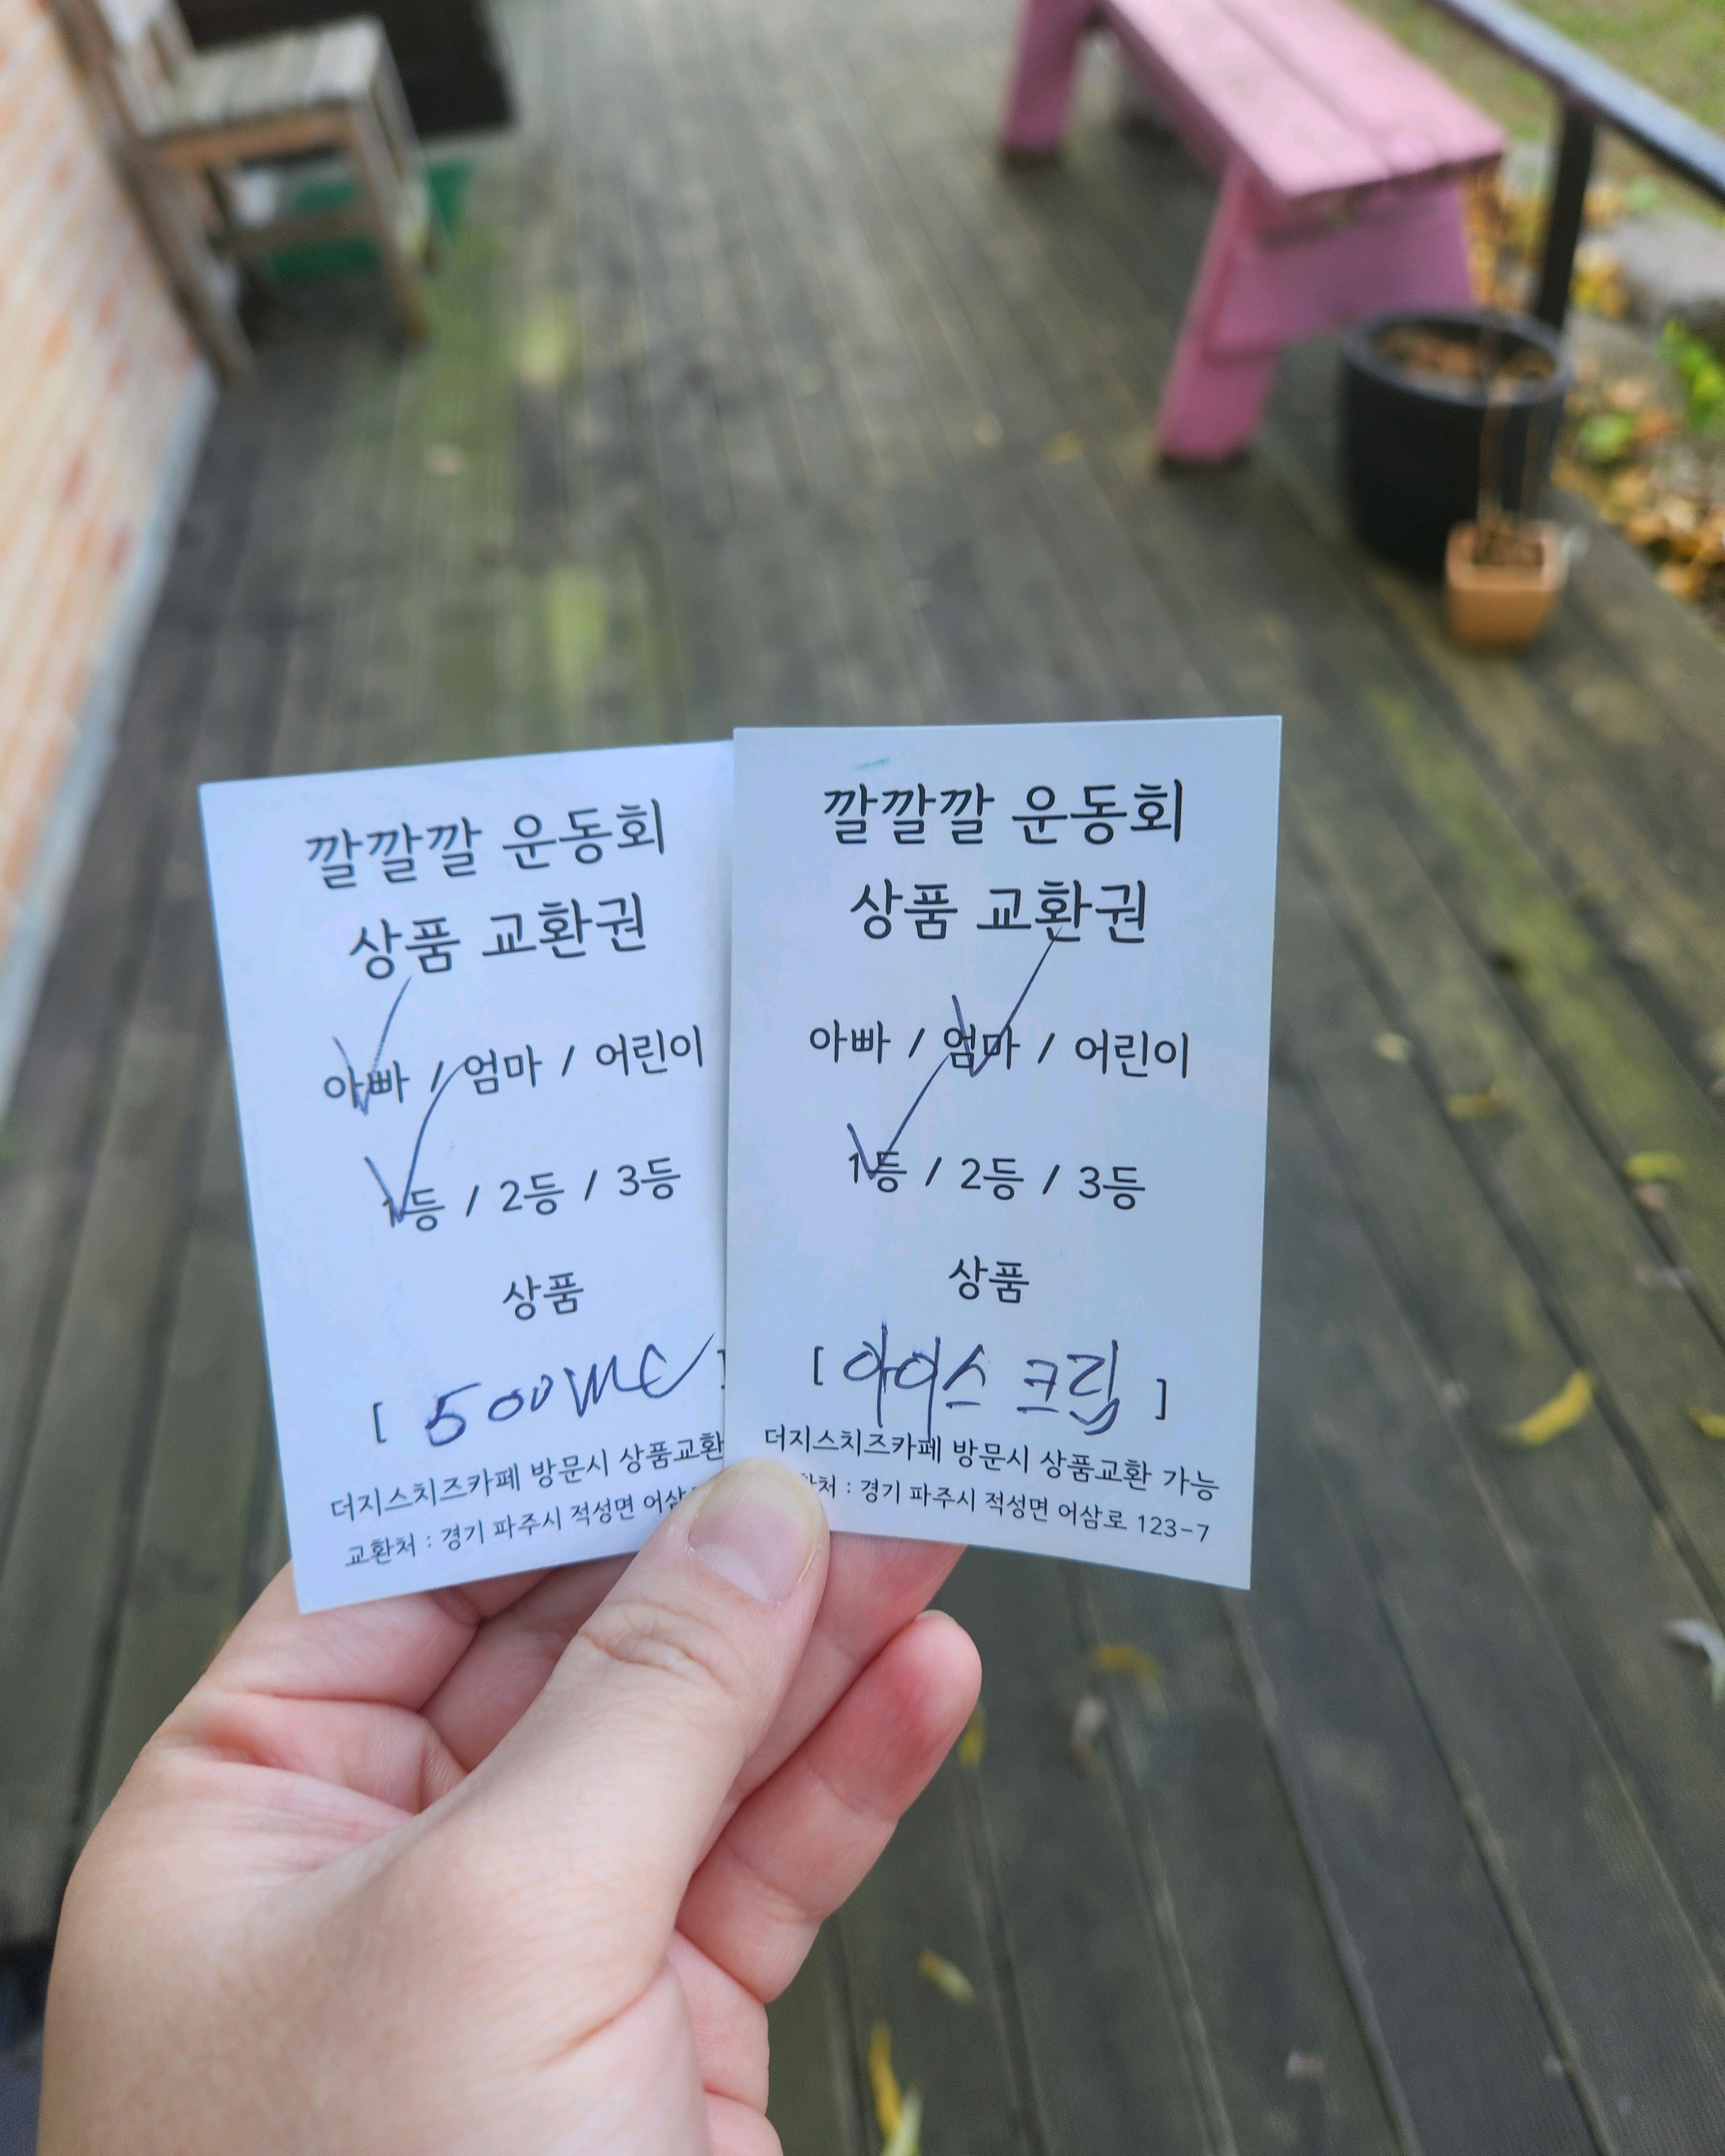 깔깔깔 운동회
상품 교환권
아빠 / 엄마 / 어린이
1등 / 2등 / 3등
상품
[ 500ml ]
더지스치즈카페 방문시 상품교환
교환처 : 경기 파주시 적성면 어삼
깔깔깔 운동회
상품 교환권
아빠 / 엄마 / 어린이
1등 / 2등 / 3등
상품
[ 아이스 크림 ]
더지스치즈카페 방문시 상품교환 가능
환처 : 경기 파주시 적성면 어삼로 123-7